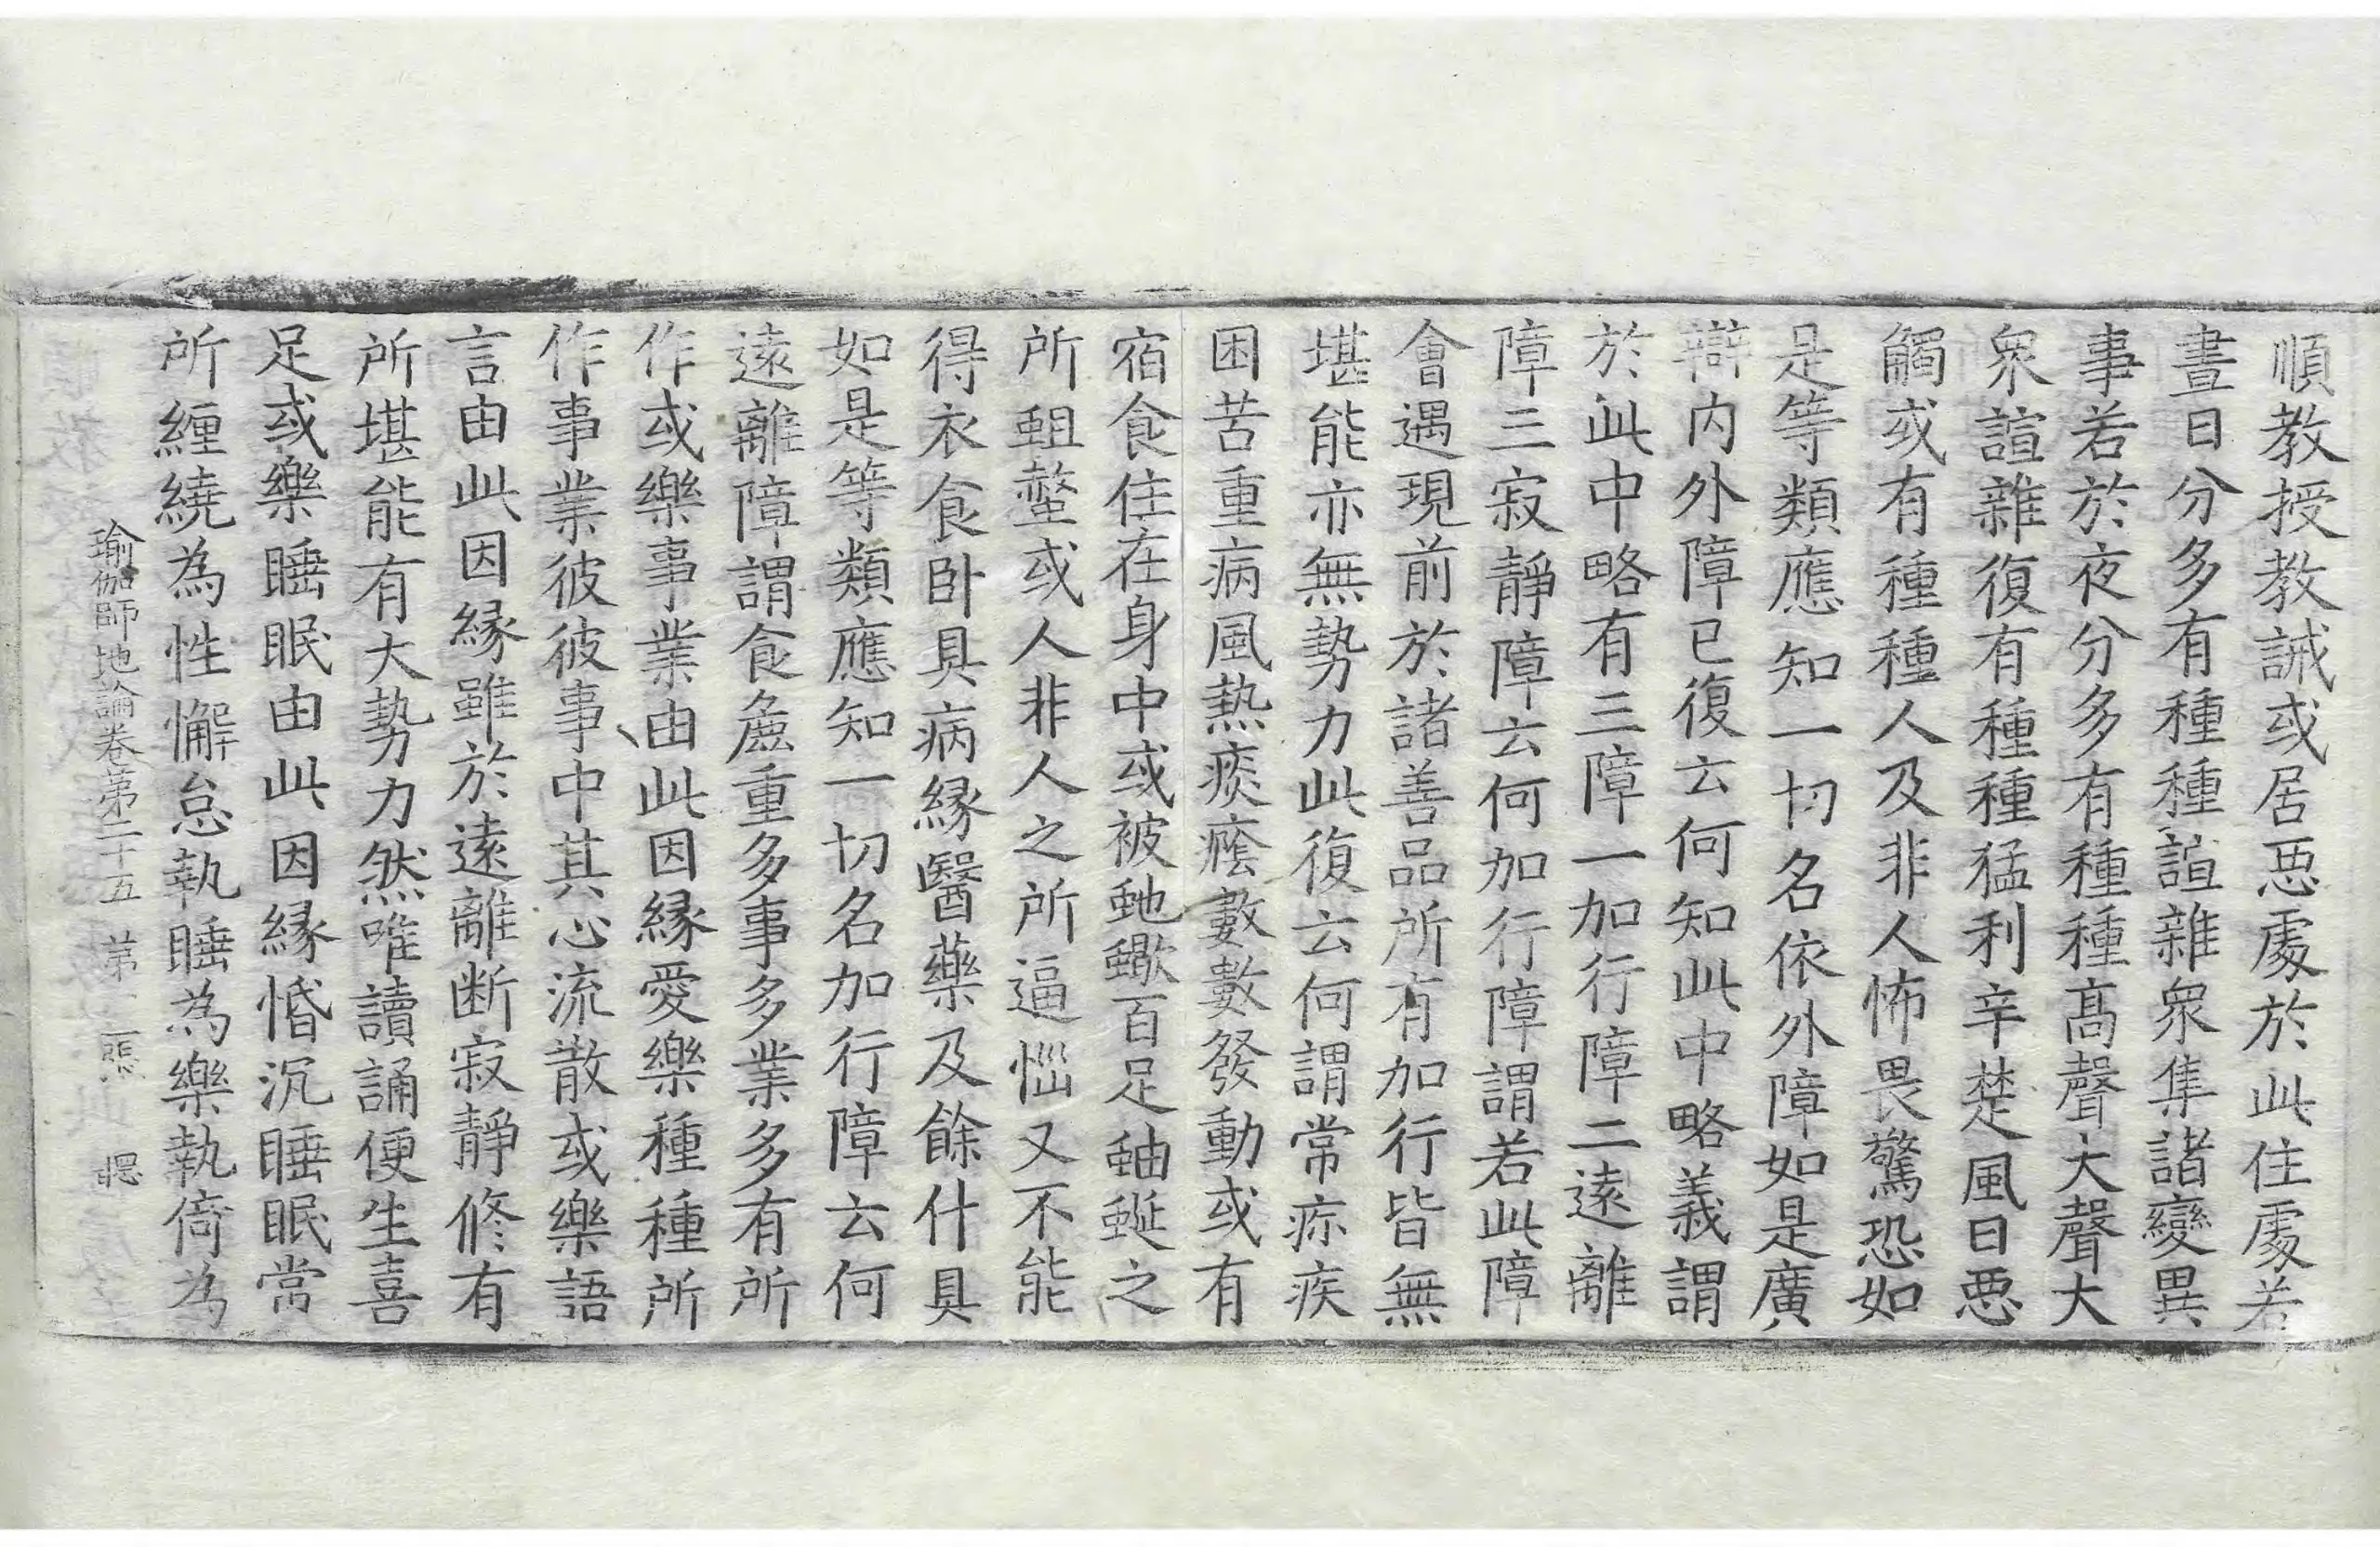 順教授教誡或居惡處於此住處若
晝日分多有種種諠雜衆集諸變異
事若於夜分多有種種髙聲大聲大
衆諠雜復有種種猛利辛楚風日惡
觸或有種種人及非人怖畏驚恐如
是等類應知一切名依外障如是廣
辯内外障已復云何知此中略義謂
於此中略有三障一加行障二遠離
障三寂靜障云何加行障謂若此障
會遇現前於諸善品所有加行皆無
堪能亦無勢力此復云何謂常疹疾
困苦重病風熱痰癊數數發動或有
宿食住在身中或被虵蠍百足蚰蜒之
所蛆螫或人非人之所逼惱又不能
得衣食卧具病縁醫藥及餘什具
如是等類應知一切名加行障云何
遠離障謂食麁重多事多業多有所
作或樂事業由此因縁愛樂種種所
作事業彼彼事中其心流散或樂語
言由此因縁雖於遠離断寂靜修有
所堪能有大勢力然唯讀誦便生喜
足或樂睡眠由此因縁惛沉睡眠常
所纒繞為性懈怠執睡為樂執倚為
瑜伽師地論卷第二十五 第 張